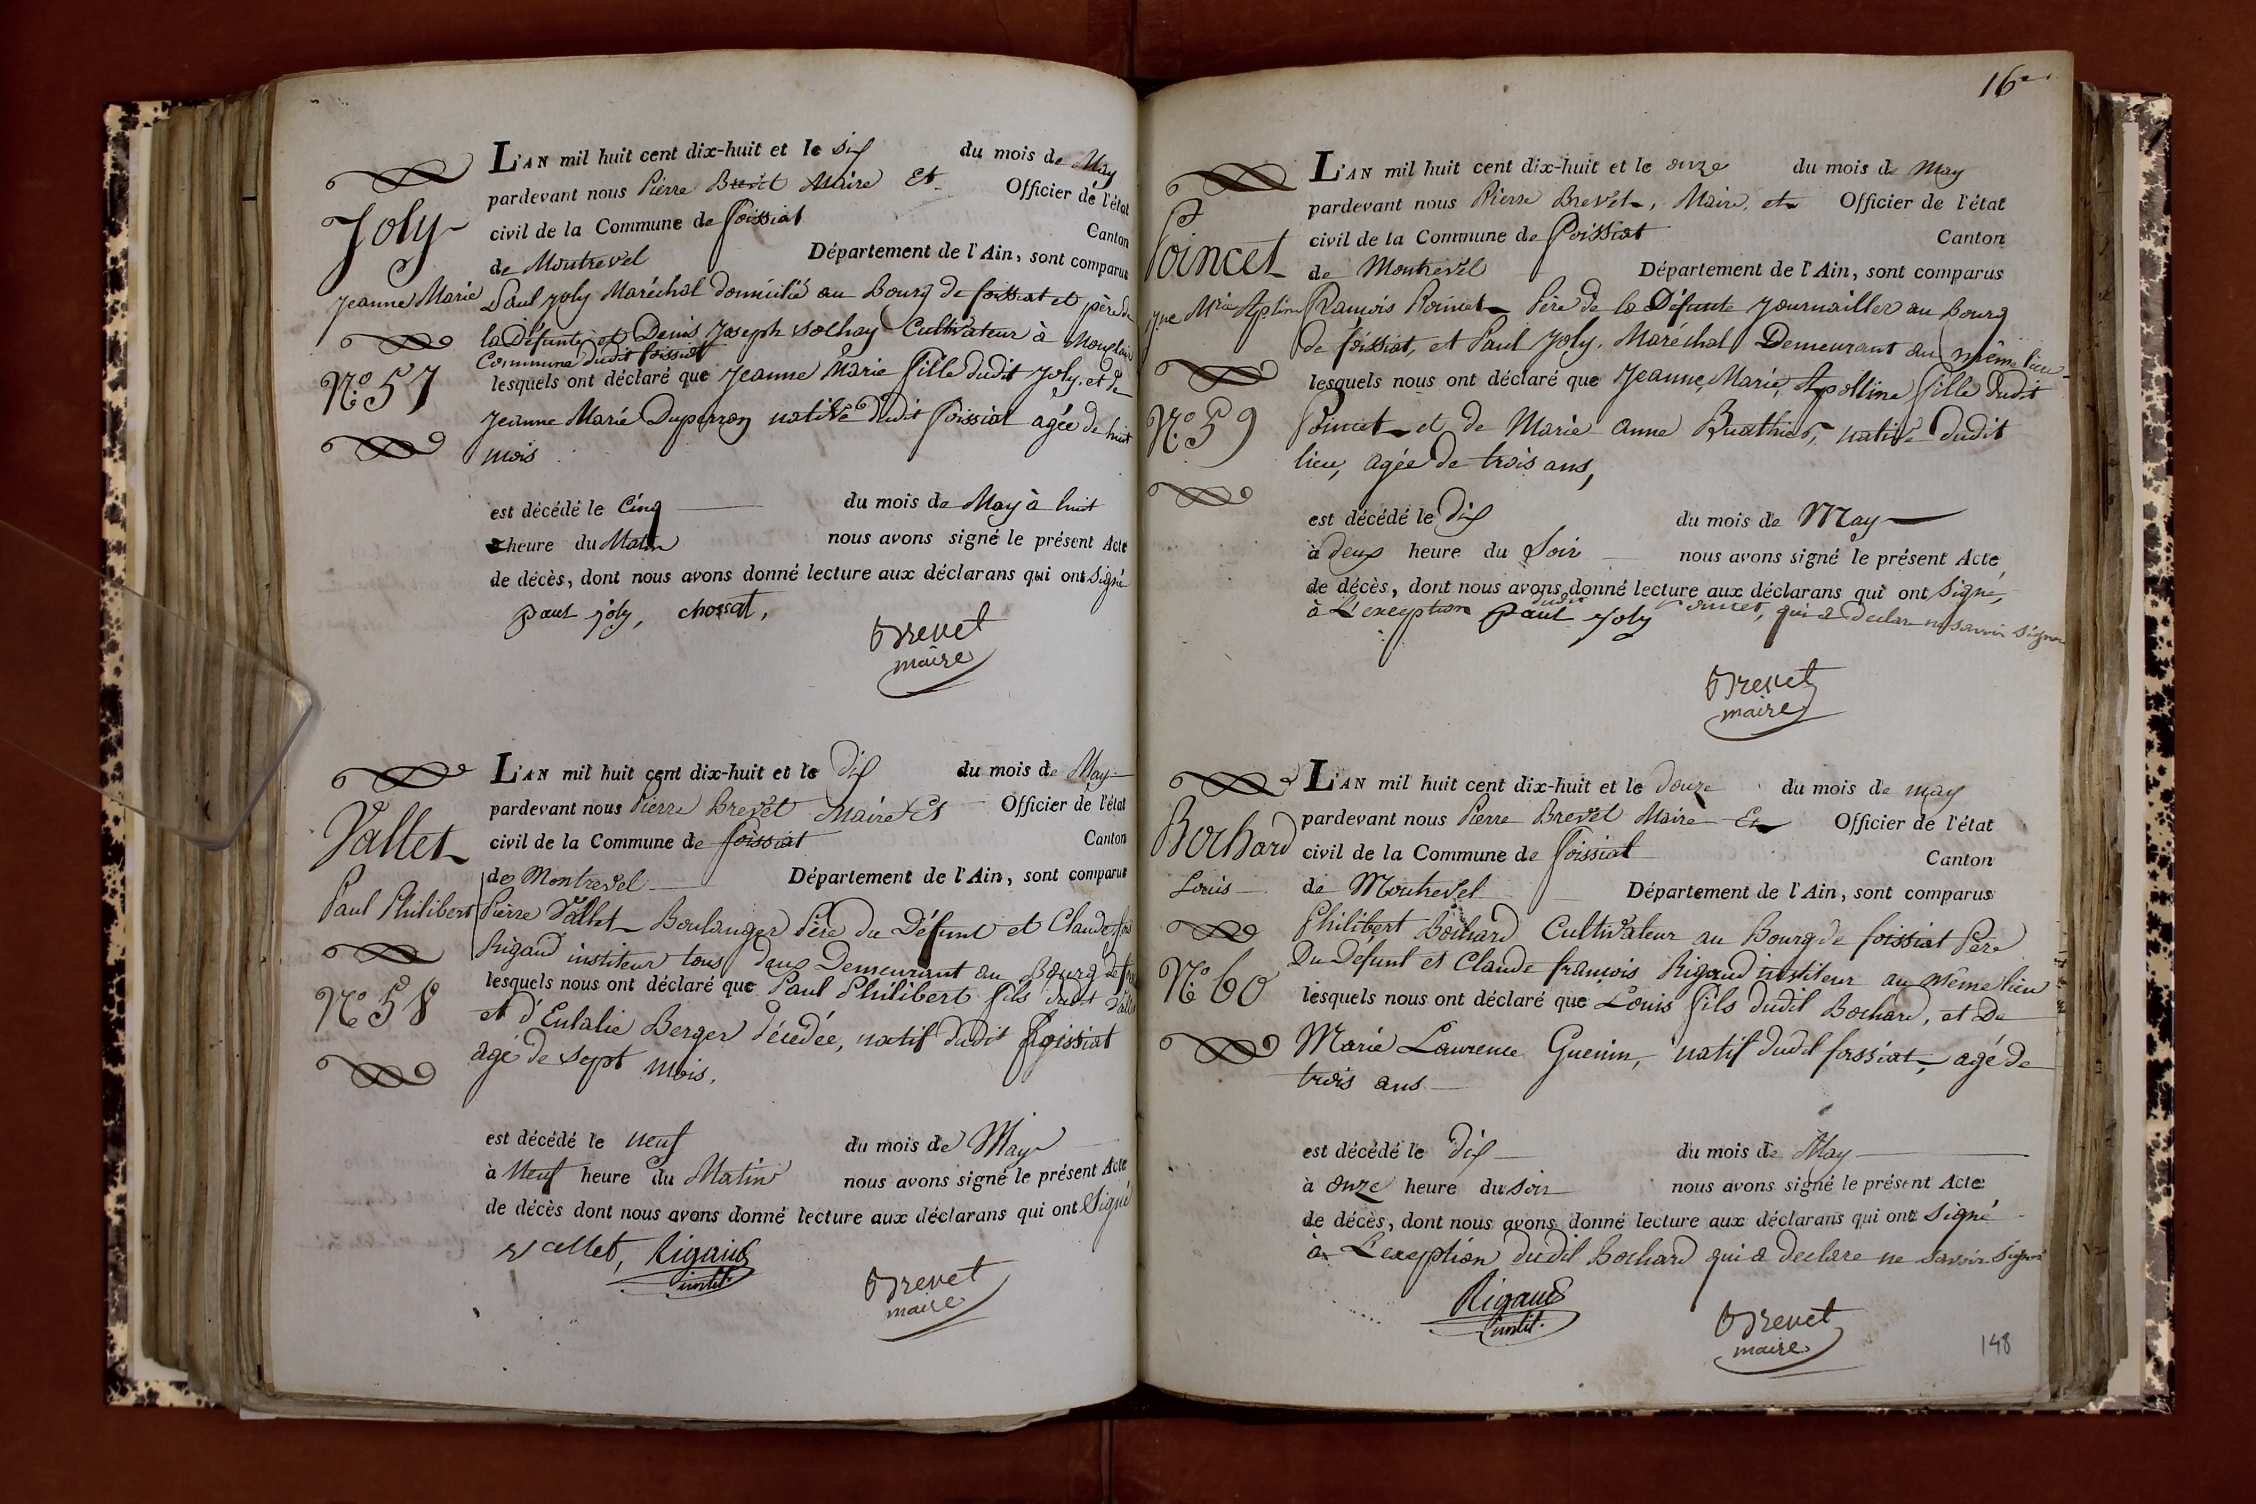 Joly
Jeanne Marie
N.° 57
L'AN mil huit cent dix-huit et le six du mois de May
pardevant nous Pierre Brevet Maire et Officier de l'état
civil de la Commune de foissiat Canton
de Montrevel Département de l'Ain, sont comparus
Paul Joly Maréchal domicilié au Bourg de foissiat et père de
la Défunte, et Denis Joseph Cultivateur à
Commune dudit foissiat
lesquels ont déclaré que Jeanne Marie fille dudit Joly, et de
Jeanne Marie Duperron native dudit foissiat agée de huit
mois
est décédé le Cinq du mois de May à huit
heure du Matin nous avons signé le présent Acte
de décès, dont nous avons donné lecture aux déclarans qui ont signé
paul joly, chossat,
Brevet
maire
Vallet
Paul Philibert
N.° 58
L'AN mil huit cent dix-huit et le dix du mois de May
pardevant nous Pierre Brevet Maire et Officier de l'état
civil de la Commune de foissiat Canton
de Montrevel Département de l'Ain, sont comparus
Pierre Vallet Boulanger Père du Défunt et Claude
Rigaud institeur tous deux Demeurant au Bourg de
lesquels nous ont déclaré que Paul Philibert fils dudit Vallet
et d'Eulalie Berger décédée, natif dudit foissiat
agé de sept mois.
est décédé le neuf du mois de May
à Neuf heure du Matin nous avons signé le présent Acte
de décès dont nous avons donné lecture aux déclarans qui ont Signé
Vallet, Rigaud
instit.
Brevet
maire
16e
Poincet
jne Mrie Apline
N.° 59
L'AN mil huit cent dix-huit et le onze du mois de May
pardevant nous Pierre Brevet, Maire, et Officier de l'état
civil de la Commune de foissiat Canton
de Montrevel Département de l'Ain, sont comparus
François Poincet Père de la Défunte Journailler au Bourg
de foissiat, et Paul Joly, Maréchal Demeurant au même lieu
lesquels nous ont déclaré que Jeanne, Marie, Apolline fille dudit
Poincet et de Marie Anne Buathier, native dudit
lieu, agée de trois ans,
est décédé le Dix du mois de May
à deux heure du Soir nous avons signé le présent Acte
de décès, dont nous avons donné lecture aux déclarans qui ont Signé,
à L'exception dudit Poincet, qui a declare ne savoir signer
paul joly
Brevet
maire
Bochard
Louis
N.° 60
L'AN mil huit cent dix-huit et le douze du mois de may
pardevant nous Pierre Brevet Maire Et Officier de l'état
civil de la Commune de foissiat Canton
de Montrevel Département de l'Ain, sont comparus
Philibert Bochard Cultivateur au Bourg de foissiat Père
Du Defunt et Claude françois Rigaud institeur au même lieu
lesquels nous ont déclaré que Louis fils dudit Bochard, et De
Marie Laurence Guenin, natif dudit foissiat, agé de
trois ans
est décédé le Dix du mois de May
à onze heure du soir nous avons signé le présent Acte
de décès, dont nous avons donné lecture aux déclarans qui ont signé
à L'exception dudit Bochard qui a declare ne savoir signer
Rigaud
instit.
Brevet
maire
148